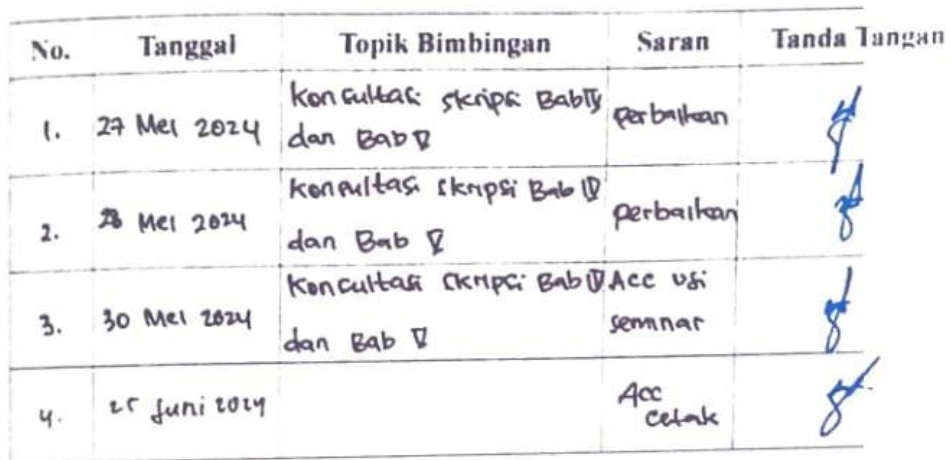 No. Tanggal Topik Bimbingan Saran Tanda Tangan
1. 27 Mei 2024 Konsultasi skripsi Bab IV perbaikan
dan Bab V
2. 28 Mei 2024 Konsultasi skripsi Bab IV perbaikan
dan Bab V
3. 30 Mei 2024 Konsultasi skripsi Bab IV Acc usi
dan Bab V seminar
4. 25 Juni 2024 Acc
cetak